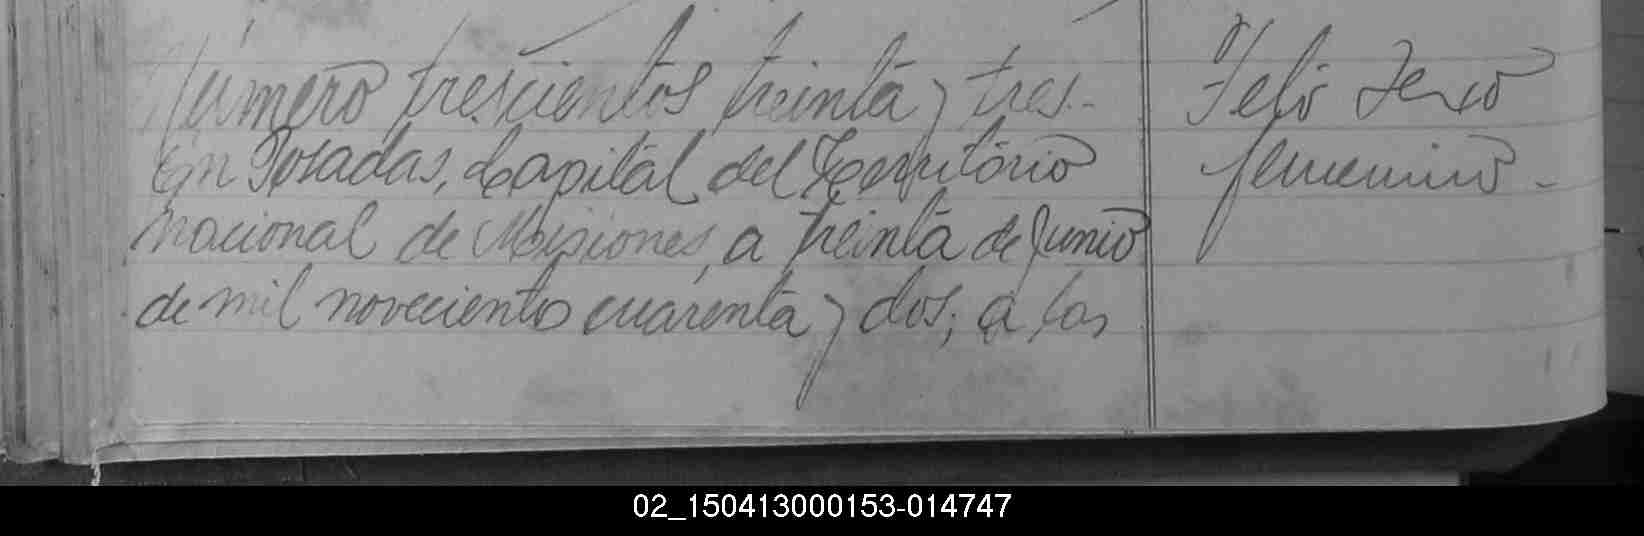 Número trescientos treinta y tres.-
En Posadas, Capital del Territorio
nacional de Misiones, a treinta de Junio
de mil noveciento cuarenta y dos, a las
Feto Sexo
femenino -
02_150413000153-014747